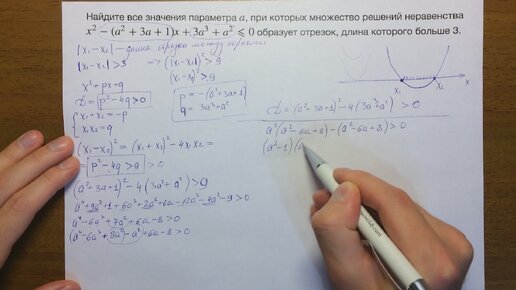 Найдите все значения параметра a, при которых множество решений неравенства
x² − (a² + 3a + 1)x + 3a³ + a² ⩽ 0 образует отрезок, длина которого больше 3.
|x₁-x₂| - длина отрезка между корнями
|x₁-x₂|>3 ⇒ (|x₁-x₂|)²>9
(x₁-x₂)²>9
x²+px+q
D=p²-4q>0
p=-(a²+3a+1)
q=3a³+a²
{x₁+x₂=-p
x₁x₂=q
(x₁-x₂)²=(x₁+x₂)²-4x₁x₂=
=p²-4q>9
(a²+3a+1)²-4(3a³+a²)>9
a⁴+9a²+1+6a³+2a²+6a-12a³-4a²-9>0
a⁴-6a³+7a²+6a-8>0
(a⁴-6a³+8a²-a²)+6a-8>0
x₁ x₂ x
D=(a²+3a+1)²-4(3a³+a²)>0
a²(a²-6a+8)-(a²-6a+8)>0
(a²-1)(a